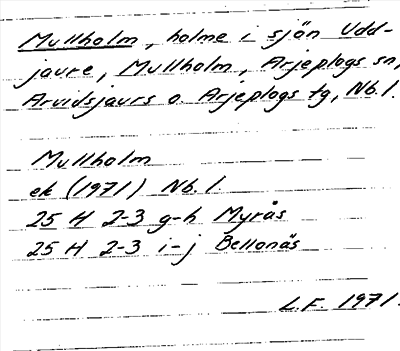 Mullholm, holme i sjön Udd-
jaure, Mullholm, Arjeplogs sn,
Arvidsjaurs o. Arjeplogs tg, Nb. l.
Mullholm
ek (1971) Nb. l.
25 H 2-3 g-h Myrås
25 H 2-3 i-j Bellonäs
L.F. 1971.